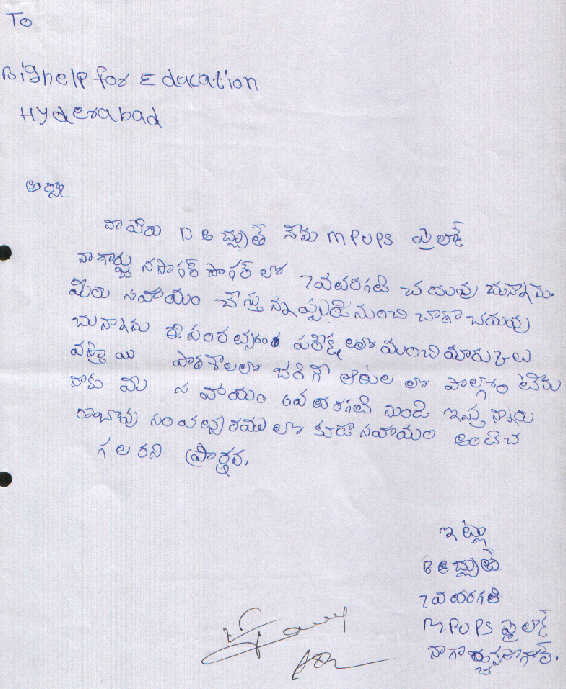 To
Bighelp for Education
Hyderabad
అన్నా
నా పేరు D అచ్యుత్ నేను MPUPS పైలాన్
నాగార్జున సాగర్ లో 7వ తరగతి చదువుచున్నాను
మీరు సహాయం చేస్తున్నప్పటి నుంచి బాగా చదువు
చున్నాను ఈ సంవత్సరం పరీక్ష లలో మంచి మార్కులు
పాఠశాలలో జరిగే ఆటల లో పాల్గొంటాను
నాకు మీ సహాయం 6వ తరగతి నుండి ఇస్తున్నారు
సంవత్సరము లో కూడా సహాయం
గలరని ప్రార్థన.
ఇట్లు
అచ్యుత్
7వ తరగతి
MPUPS పైలాన్
నాగార్జునసాగర్.